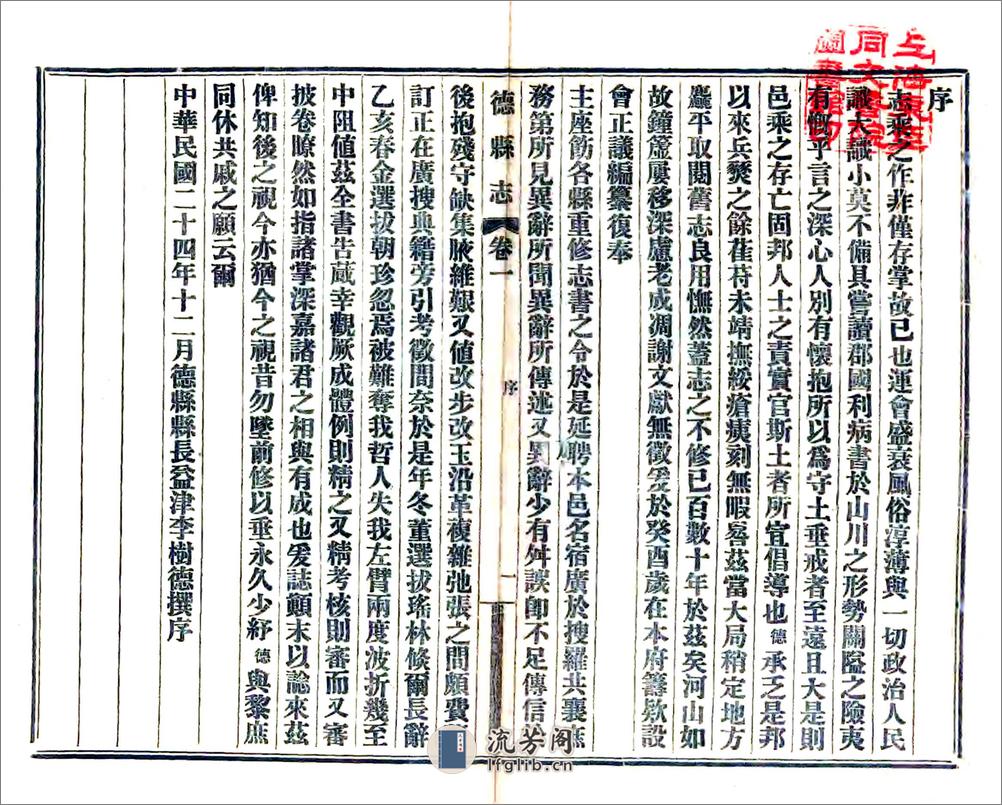 上海東亞
同文書院
圖書館印
序
志乘之作非僅存掌故已也運會盛衰風俗淳薄與一切政治人民
識大識小莫不備具嘗讀郡國利病書於山川之形勢關隘之險夷
有慨乎言之深心人別有懷抱所以爲守土垂戒者至遠且大是則
邑乘之存亡固邦人士之責實官斯土者所宜倡導也德承乏是邦
以來兵燹之餘萑苻未靖撫綏瘡痍刻無暇晷茲當大局稍定地方
麤平取閱舊志良用憮然蓋志之不修已百數十年於茲矣河山如
故鐘虡屢移深慮老成凋謝文獻無徵爰於癸酉歲在本府籌欵設
會正議編纂復奉
主座飭各縣重修志書之令於是延聘本邑名宿廣於搜羅共襄庶
務第所見異辭所聞異辭所傳述又異辭少有舛誤卽不足傳信
德縣志 卷一 序 一
後抱殘守缺集腋維艱又值改步改玉沿革複雜弛張之間頗費
訂正在廣搜典籍旁引考徵間奈於是年冬董選拔瑤林倐爾長辭
乙亥春金選拔朝珍忽焉被難奪我哲人失我左臂兩度波折幾至
中阻値茲全書告蕆幸觀厥成體例則精之又精考核則審而又審
披卷瞭然如指諸掌深嘉諸君之相與有成也爰誌顛末以諗來茲
俾知後之視今亦猶今之視昔勿墜前修以垂永久少紓德與黎庶
同休共戚之願云爾
中華民國二十四年十二月德縣縣長益津李樹德撰序
流芳阁
lfglib.cn